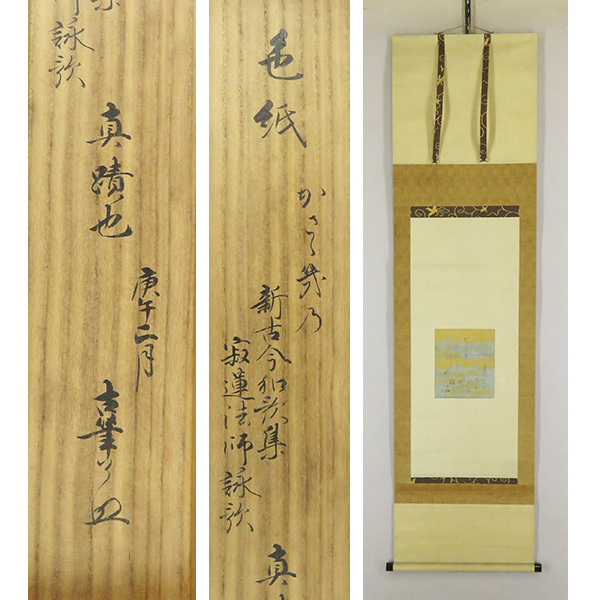 色紙
かさゝ幾乃
新古今和歌集
寂蓮法師詠歌
真
詠歌
真蹟也
庚午二月
古筆了